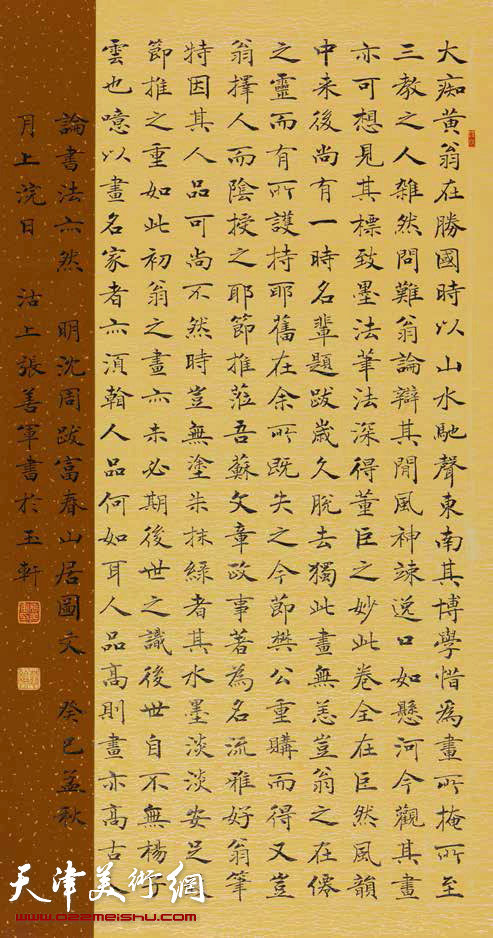 大痴黃翁在勝國時以山水馳聲東南其博學惜為畫所掩所至
三教之人雜然問難翁論辯其閒風神竦逸口如懸河今觀其畫
亦可想見其標致墨法筆法深得董巨之妙此卷全在巨然風韻
中来後尚有一時名輩題跋歲久脫去獨此畫無恙豈翁之在僊
之靈而有所護持耶舊在余所既失之今節樊公重購而得又豈
翁擇人而陰授之耶節推蒞吾蘇文章政事著為名流雅好翁筆
特因其人品可尚不然時豈無塗朱抹綠者其水墨淡淡安足
節推之重如此初翁之畫亦未必期後世之識後世自不無楊子
雲也噫以畫名家者亦須看人品何如耳人品高則畫亦高古人
論書法亦然 明沈周跋富春山居圖文 癸巳孟秋
月上浣日 沽上張善軍書於玉軒
天津美術網
www.022meishu.com